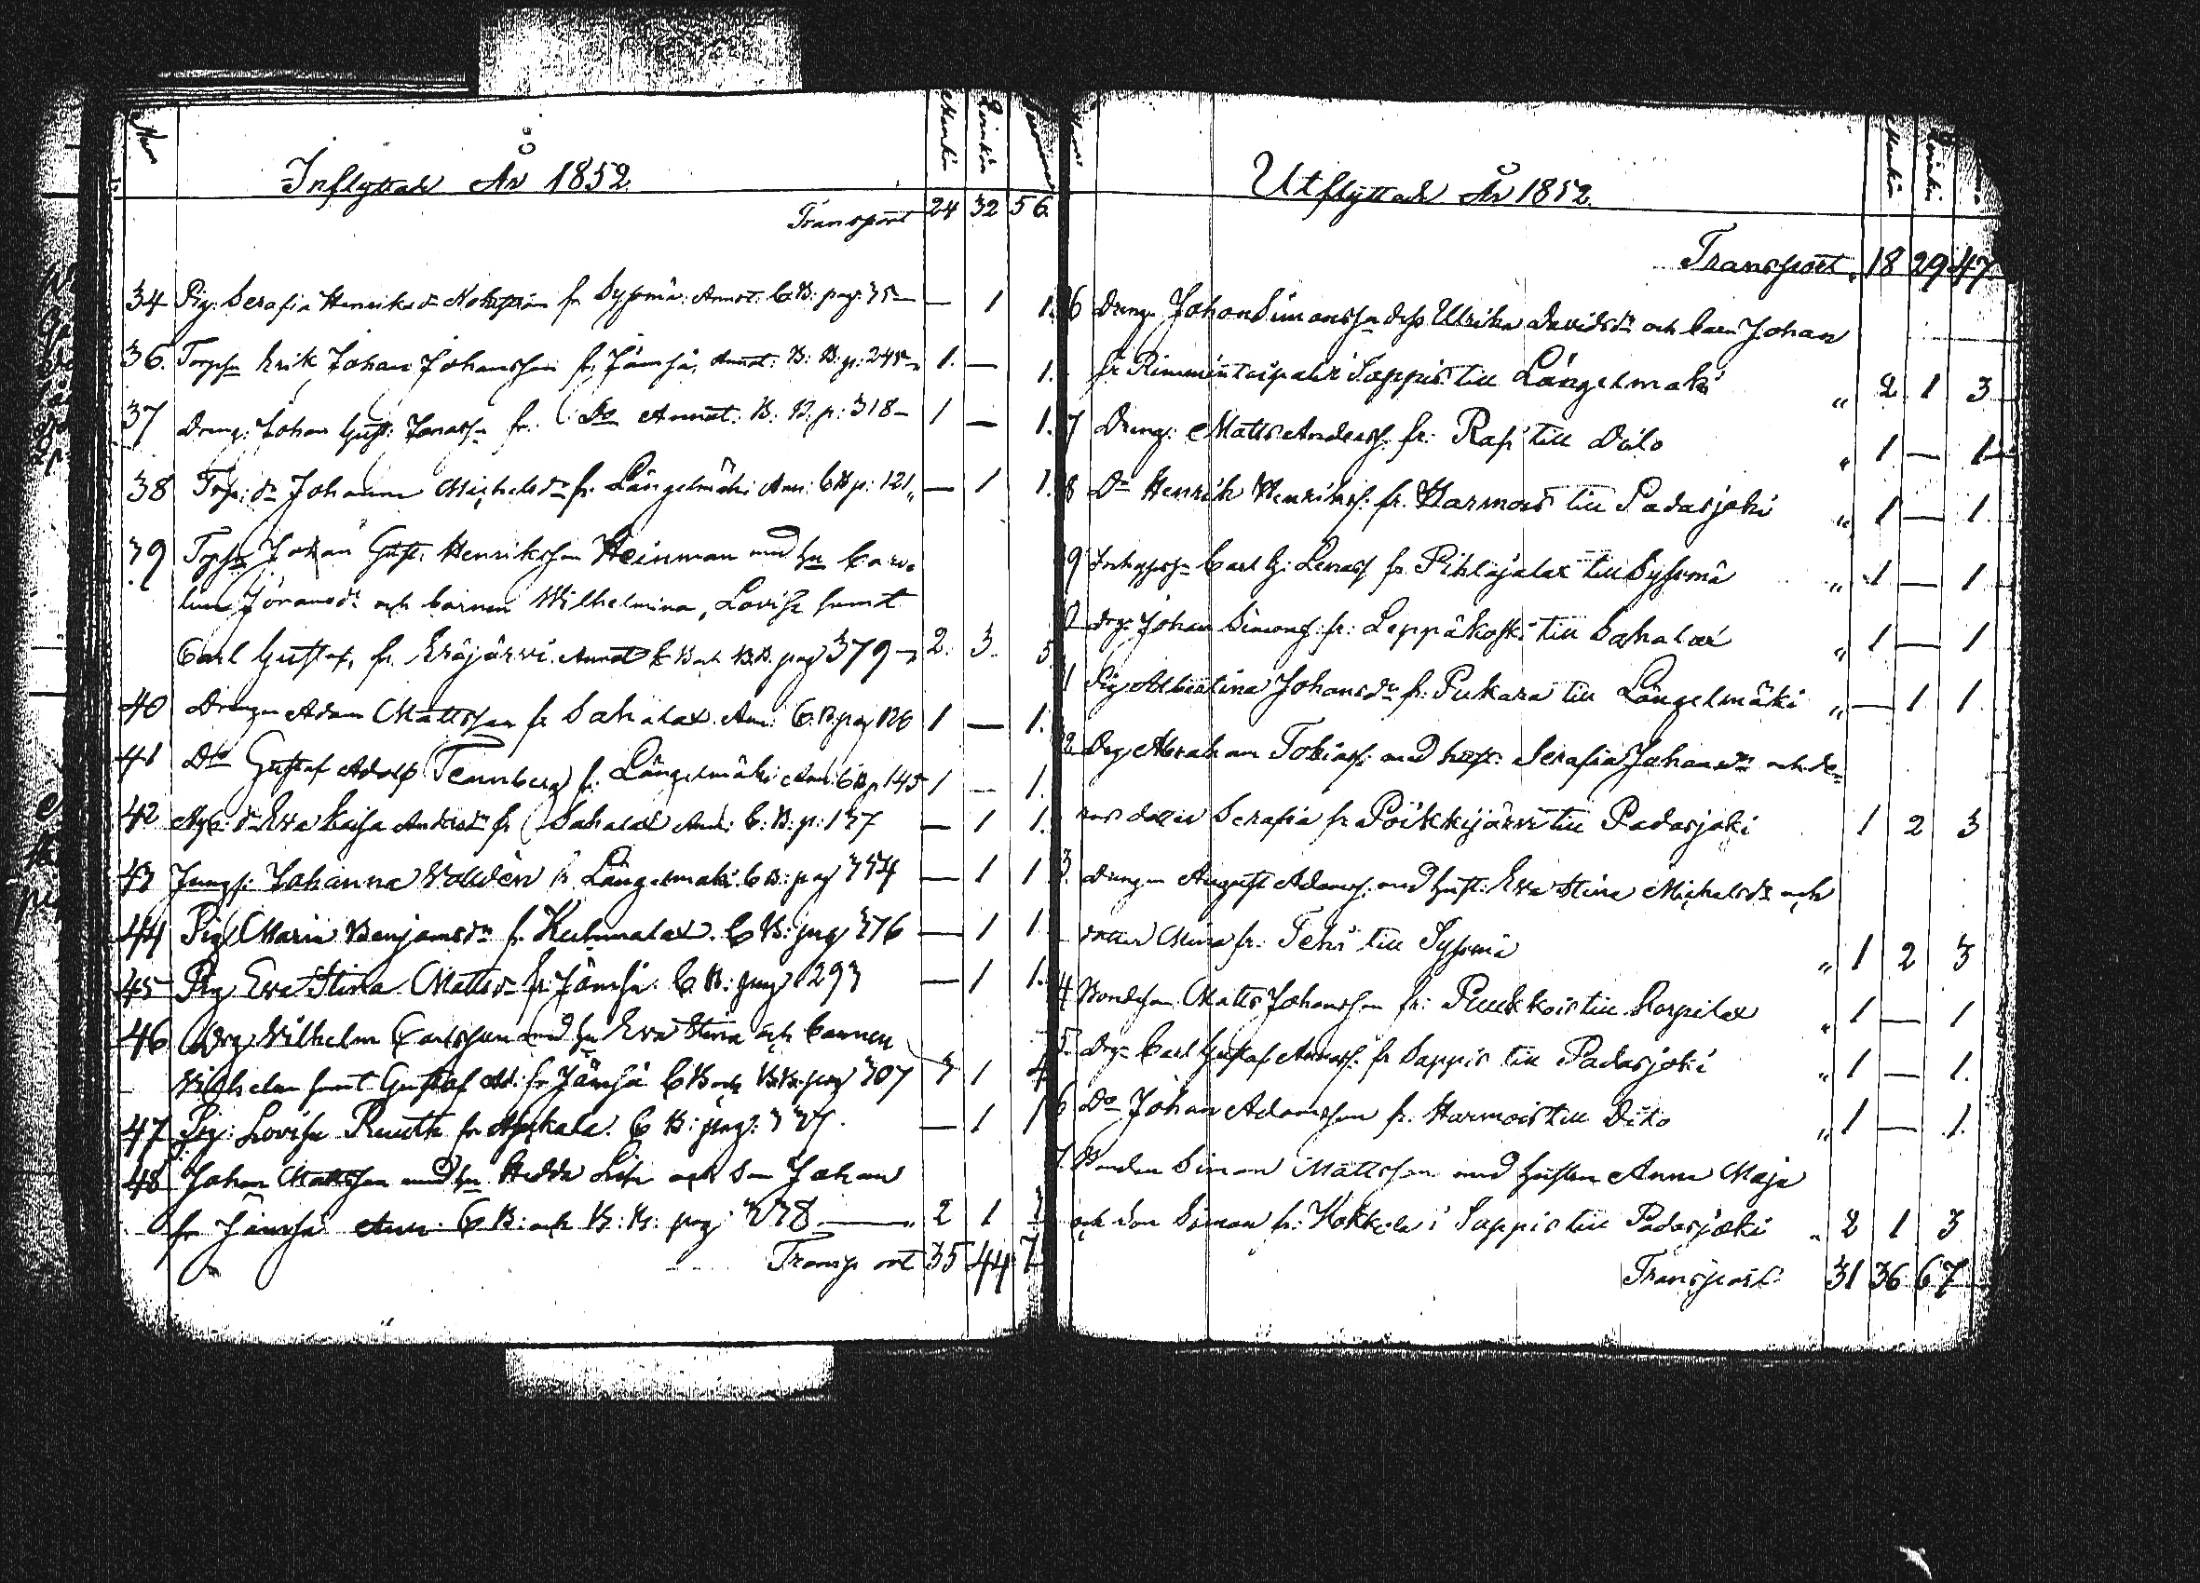 Nro Mankön Qvinkön
Inflyttade År 1852
Transport 24 32 56.
34 Pig. Serafia Henriksdr fr Sysmä: Annot: C.B: pag: 75 — 1 1.
36. Torpsn Erik Johan Johansson fr. Jämsä, Annot: B: B: p: 245 1. — 1.
37 Dreng: Johan Gust: Jonass fr. Do Annot: B. B. p: 318 — 1 — 1.
38 Torp: dr Johanna Michelsdr fr. Längelmäki Ann: C B p: 121 — 1 1.
39 Torpsn Johan Gust: Henriksson Heinman med hu Caro-
lina Jöransdr och barnen Wilhelmina, Lovisa samt
Carl Gustaf, fr. Eräjärvi. Annot C B och B.B. pag 379 2. 3. 5.
40 Drengen Adam Mattsson fr Sahalax. Ann: C. B pag 126 1 — 1.
41 Dto Gustaf Adolf Tennberg fr. Längelmäki Ann: C B p 145 1 — 1.
42 dr Eva Caisa Andersdr fr Sahalax Ann: C: B: p: 137 — 1 1.
43 Jungf: Johanna fr Längelmäki C B: pag 334 — 1 1
44 Pig Maria Benjamsdr fr. Kuhmalax. C B: pag 376 — 1 1
45 Pig Eva Stina Mattsdr fr. Jämsä. C. B: pag 293 — 1 1.
46 Drg Wilhelm Carlsson med hu Eva Stina och barnen
Wilhelm samt Gustaf Ad: fr Jämsä C B och B.B. pag 307 3 1 4
47 Pig: Lovisa Ruuth fr C B: pag: — 1 1
48 Johan Mattsson med hu Hedda Lisa och Son Johan
fr Jämsä Ann: C B: och B: B: pag: 338 — 2 1 3
Transport 35 44 7
Mankön Qvinkön
Utflyttade År 1852.
Transport 18 29 47
6 Dreng Johan Simonsson dess Ulrika Davidsdr och barn Johan
fr i Sappis till Längelmäki " 2 1 3
7 Dreng: Matts Anderss. fr. till Dito " 1 — 1
8 Do Henrik Henrikss. fr. Harmois till Padasjoki " 1 — 1
9 Carl G: fr. Pihlajalax till Sysmä " 1 — 1
Drg: Johan Simons: fr: Leppäkoski till Sahalax " 1 — 1
1 Pig Albertina Johansdr fr: Pukara till Längelmäki " — 1 1
2 Drg Abraham Tobiass: med hust: Serafia Johansdr och de-
ras dotter Serafia fr Pöikkijärvi till Padasjoki 1 2 3
3. Drengen August Adamss. med hust: Eva Stina Michelsdr och
dotter Mina fr. Tehi till Sysmä " 1 2 3
4 Bondeson Matts Johansson fr: Puukkois till Korpilax " 1 — 1
5. Drg: Carl Gustaf fr Sappis till Padasjoki " 1 — 1.
6 Do Johan Adamsson fr. Harmois till Dito " 1 — 1.
7. Bonden Simon Mattsson med hustru Anna Maja
och Son Simon fr: Kokkola i Sappis till Padasjoki " 2 1 3
Transport 31 36 67